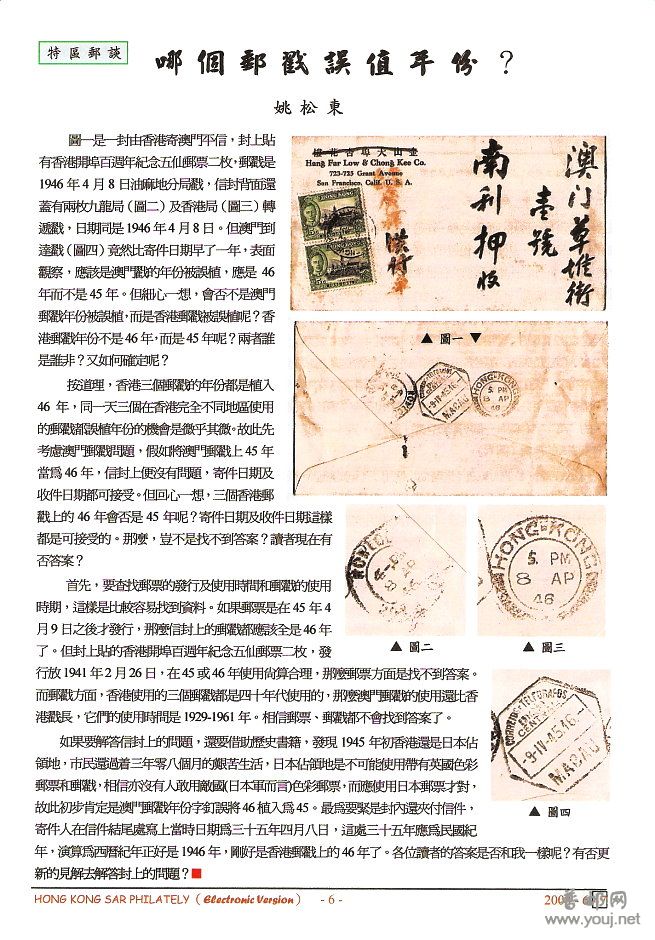 特區郵談
哪個郵戳誤值年份？
姚松東
圖一是一封由香港寄澳門不信，封上貼
有香港開埠百週年紀念五仙郵票二枚，郵戳是
1946 年 4 月 8 日油麻地分局戳，信封背面還
蓋有兩枚九龍局（圖二）及香港局（圖三）轉
遞戳，日期同是 1946 年 4 月 8 日。但澳門到
達戳（圖四）竟然比寄件日期早了一年，表面
觀察，應該是澳門戳的年份被誤植，應是 46
年而不是 45 年。但細心一想，會否不是澳門
郵戳年份被誤植，而是香港郵戳被誤植呢？香
港郵戳年份不是 46 年，而是 45 年呢？兩者誰
是誰非？又如何確定呢？
按道理，香港三個郵戳的年份都是植入
46 年，同一天三個在香港完全不同地區使用
的郵戳都誤植年份的機會是微乎其微。故此先
考慮澳門郵戳問題，假如將澳門戳上 45 年
當爲 46 年，信封上便沒有問題，寄件日期及
收件日期都可接受。但回心一想，三個香港郵
戳上的 46 年會否是 45 年呢？寄件日期及收件日期這樣
都是可接受的。那麼，豈不是找不到答案？讀者現在有
否答案？
首先，要查找郵票的發行及使用時間和郵戳的使用
時期，這樣是比較容易找到資料。如果郵票是在 45 年 4
月 9 日之後才發行，那麼信封上的郵戳都應該全是 46 年
了。但封上貼的香港開埠百週年紀念五仙郵票二枚，發
行放 1941 年 2 月 26 日，在 45 或 46 年使用尙算合理，那麼郵票方面是找不到答案。
而郵戳方面，香港使用的三個郵戳都是四十年代使用的，那麼澳門郵戳的使用還比香
港戳長，它們的使用時間是 1929-1961 年。相信郵票、郵戳都不會找到答案了。
如果要解答信封上的問題，還要借助歷史書籍，發現 1945 年初香港還是日本佔
領地，市民還過着三年零八個月的艱苦生活，日本佔領地是不可能使用帶有英國色彩
郵票和郵戳，相信亦沒有人敢用敵國(日本軍而言)色彩郵票，而應使用日本郵票才對，
故此初步肯定是澳門郵戳年份字釘誤將 46 植入爲 45。最爲要緊是封內還夾付信件，
寄件人在信件結尾處寫上當時日期爲三十五年四月八日，這處三十五年應爲民國紀
年，演算爲西曆紀年正好是 1946 年，剛好是香港郵戳上的 46 年了。各位讀者的答案是否和我一樣呢？有否更
新的見解去解答封上的問題？■
樓花杏埠大山奎
Hang Far Low & Chong Kee Co.
723-725 Grant Avenue
San Francisco, Calif. U. S. A.
HONG KONG
澳门草堆街
壹號
南利押收
▲ 圖一 ▼
MACAU
9-IV-45.16
HONG-KONG
5 PM
8 AP
▲ 圖二
HONG-KONG
5. PM
8 AP
46
▲ 圖三
CORREIOS-TELEGRAFOS
CENTRAL
-9-IV-45.16-
MACAU
▲ 圖四
HONG KONG SAR PHILATELY（Electronic Version）
- 6 -
www.youj.net